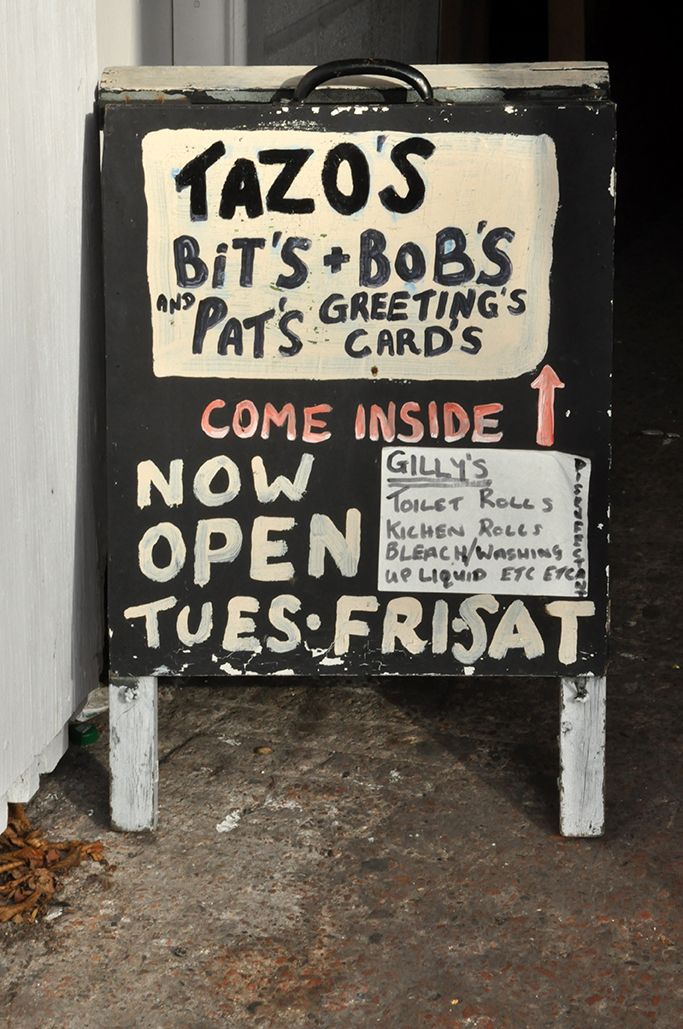 TAZO'S
BiT'S + BOB'S
AND PAT'S GREETING'S
CARD'S
COME INSIDE
NOW
OPEN
TUES·FRI·SAT
GILLY'S
TOILET ROLLS
KICHEN ROLLS
BLEACH/WASHING
UP LIQUID ETC ETC